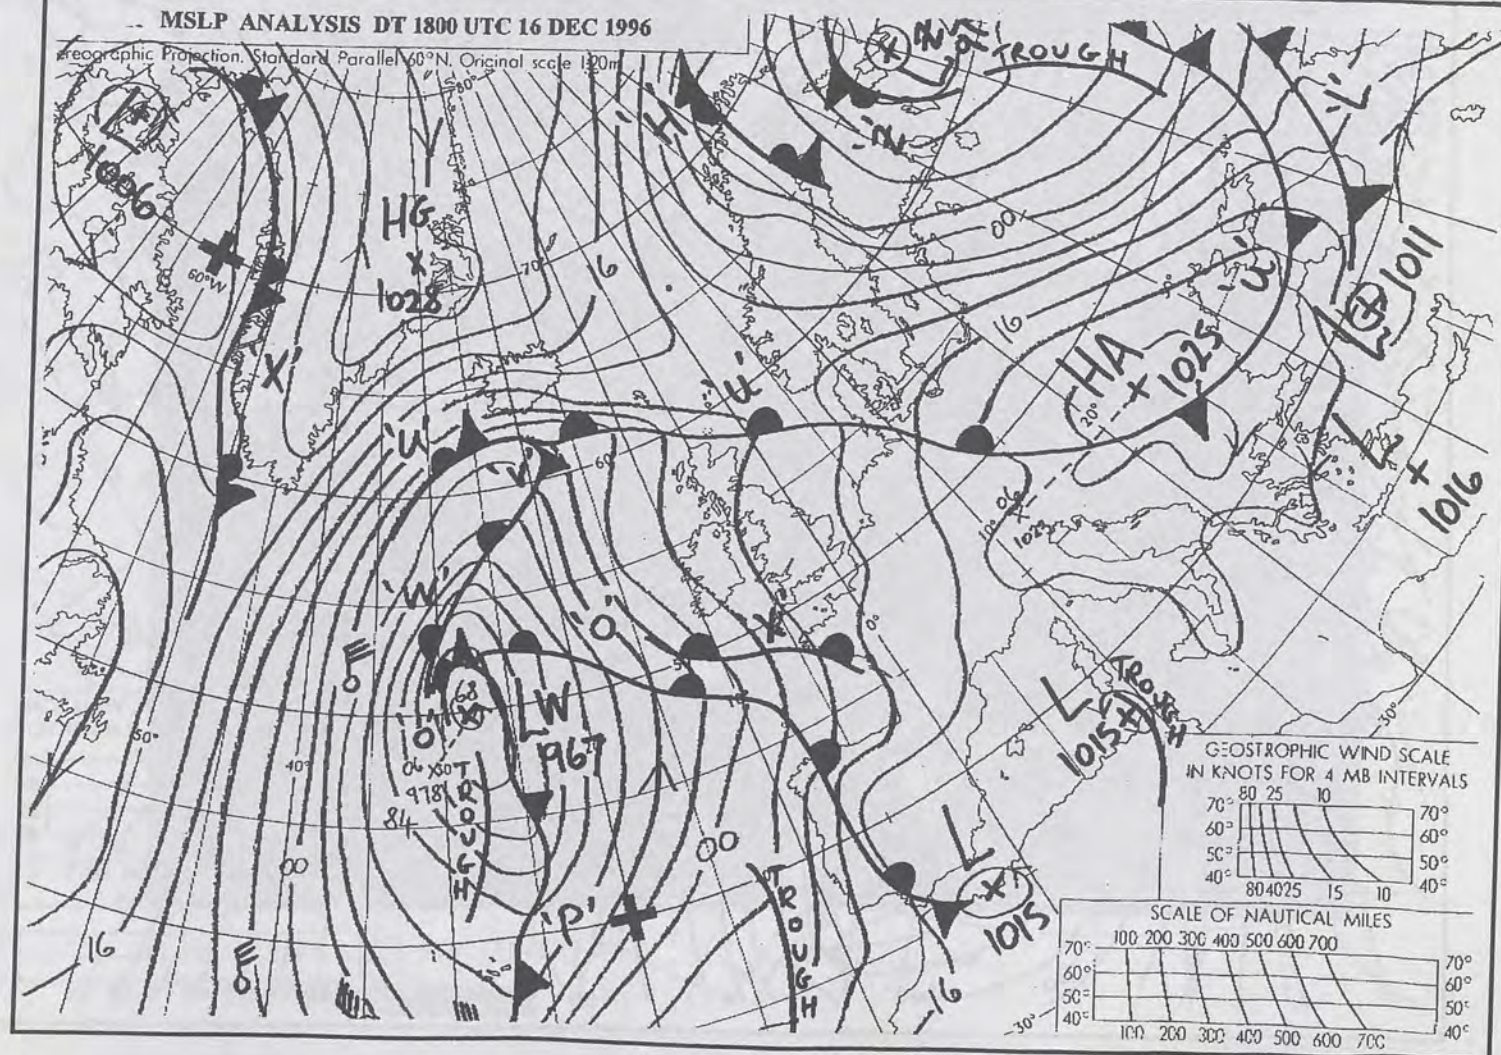 MSLP ANALYSIS DT 1800 UTC 16 DEC 1996
ereographic Projection. Standard Parallel 60°N. Original scale 1:20m
80°
TROUGH
'L'
'H'
'N'
L
1006
HG
1028
60°W
70°
16
00
'U'
1011
HA
1025
16
20°
'X'
'U'
'U'
'V'
60
L
1016
06
10°
1023
'W'
'O'
'Y'
50
0°
68
LW
967
'O'
06 X30
978
TROUGH
50°
40°
84
00
00
L
1015
TROUGH
30°
'P'
TROUGH
L
1015
16
16
30°
GEOSTROPHIC WIND SCALE
IN KNOTS FOR 4 MB INTERVALS
80 25 10
70° 70°
60° 60°
50° 50°
40° 40°
80 40 25 15 10
SCALE OF NAUTICAL MILES
100 200 300 400 500 600 700
70° 70°
60° 60°
50° 50°
40° 40°
100 200 300 400 500 600 700